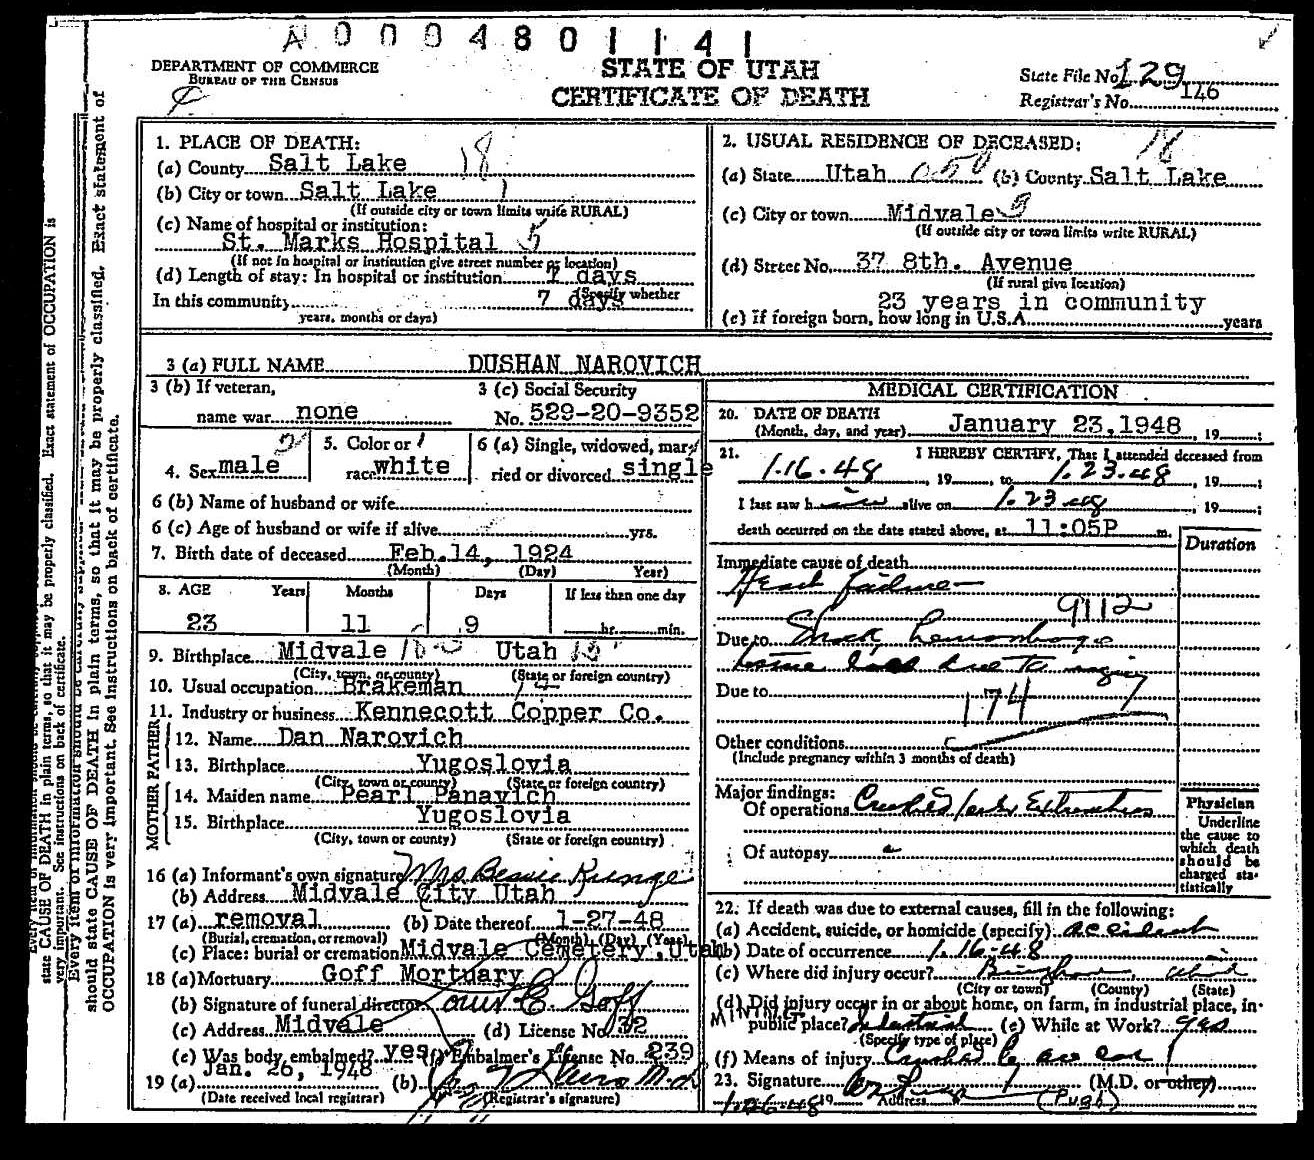 A 0 0 0 4 8 0 1 1 4 1
DEPARTMENT OF COMMERCE
BUREAU OF THE CENSUS
STATE OF UTAH
CERTIFICATE OF DEATH
State File No. 129
Registrar's No. 146
1. PLACE OF DEATH:
(a) County Salt Lake 18
(b) City or town Salt Lake 1
(If outside city or town limits write RURAL)
(c) Name of hospital or institution:
St. Marks Hospital 5
(If not in hospital or institution give street number or location)
(d) Length of stay: In hospital or institution 7 days
(Specify whether
In this community 7 days
years, months or days)
2. USUAL RESIDENCE OF DECEASED: 18
(a) State Utah 050 (b) County Salt Lake
(c) City or town Midvale 9
(If outside city or town limits write RURAL)
(d) Street No. 37 8th. Avenue
(If rural give location)
23 years in community
(e) If foreign born, how long in U.S.A. years
3 (a) FULL NAME DUSHAN NAROVICH
3 (b) If veteran,
name war none
3 (c) Social Security
No. 529-20-9352
4. Sex male
5. Color or
race white
6 (a) Single, widowed, mar-
ried or divorced single
6 (b) Name of husband or wife
6 (c) Age of husband or wife if alive yrs.
7. Birth date of deceased Feb. 14, 1924
(Month) (Day) Year)
8. AGE Years Months Days If less than one day
23 11 9 hr. min.
9. Birthplace Midvale Utah
(City, town, or county) (State or foreign country)
10. Usual occupation Brakeman
11. Industry or business Kennecott Copper Co.
FATHER
12. Name Dan Narovich
13. Birthplace Yugoslovia
(City, town or county) (State or foreign country)
MOTHER
14. Maiden name Pearl Panavich
15. Birthplace Yugoslovia
(City, town or county) (State or foreign country)
16 (a) Informant's own signature Mrs
(b) Address Midvale City Utah
17 (a) removal (b) Date thereof 1-27-48
(Burial, cremation, or removal) (Month) (Day) (Year)
(c) Place: burial or cremation Midvale Cemetery, Utah
18 (a) Mortuary Goff Mortuary
(b) Signature of funeral director Louis E. Goff
(c) Address Midvale (d) License No. 132
(e) Was body embalmed? yes (f) Embalmer's License No. 239
19 (a) Jan. 26, 1948 (b) M.D.
(Date received local registrar) (Registrar's signature)
MEDICAL CERTIFICATION
20. DATE OF DEATH
(Month, day, and year) January 23, 1948, 19 ;
21. I HEREBY CERTIFY, That I attended deceased from
1.16.48, 19 , to 1.23.48, 19 ;
I last saw him alive on 1.23.48, 19 ;
death occurred on the date stated above, at 11:05P m.
Duration
Immediate cause of death
Heart failure
9112
Due to Shock hemorrhage
due to
Due to
174
Other conditions
(Include pregnancy within 3 months of death)
Major findings:
Of operations Crushed
Of autopsy
Physician
Underline
the cause to
which death
should be
charged sta-
tistically
22. If death was due to external causes, fill in the following:
(a) Accident, suicide, or homicide (specify) accident
(b) Date of occurrence 1.16.48
(c) Where did injury occur? Bingham, Utah
(City or town) (County) (State)
(d) Did injury occur in or about home, on farm, in industrial place, in
MINING
public place? Industrial (e) While at Work? yes
(Specify type of place)
(f) Means of injury Crushed by ore car
23. Signature (M.D. or other)
1.26.48 19 Address (Pugh)
should state CAUSE OF DEATH in plain terms, so that it may be properly classified. Exact statement of
OCCUPATION is very important. See instructions on back of certificate.
state CAUSE OF DEATH in plain terms, so that it may be properly classified. Exact statement of OCCUPATION is
very important. See instructions on back of certificate.